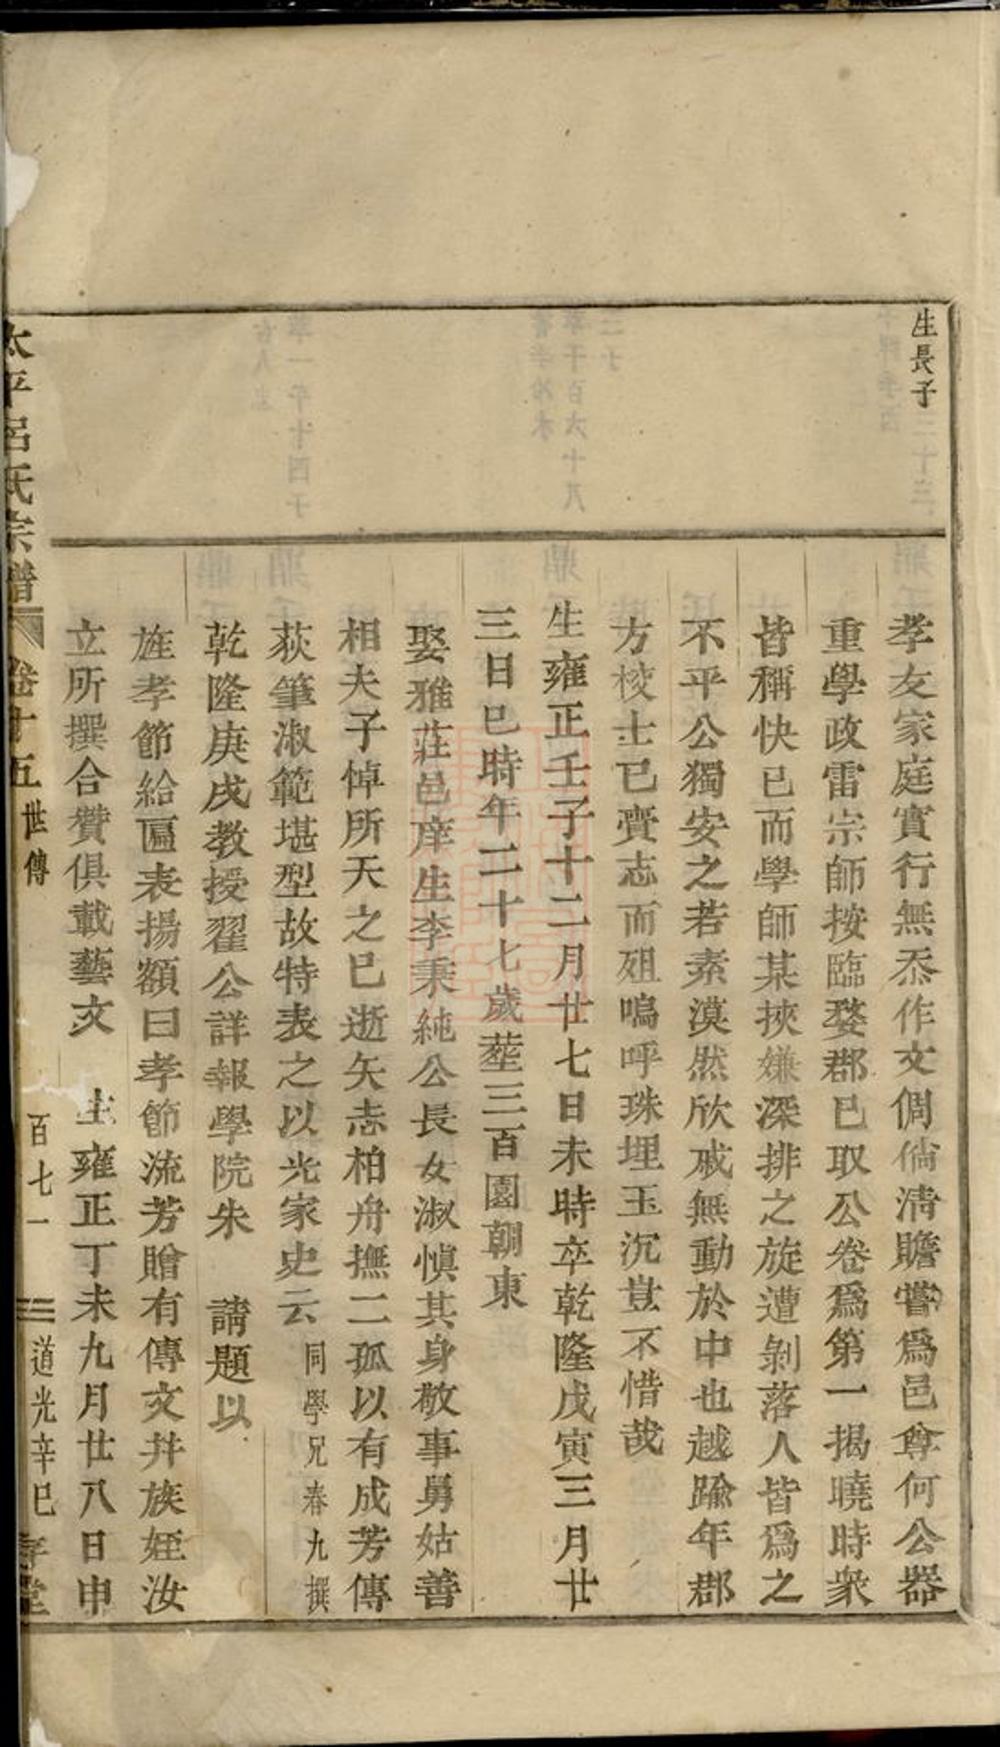 生長子
孝友家庭實行無忝作文倜儻清贍嘗爲邑尊何公器
重學政雷宗師按臨婺郡已取公卷爲第一揭曉時衆
皆稱快已而學師某挾嫌深排之旋遭剝落人皆爲之
不平公獨安之若素漠然欣戚無動於中也越踰年郡
方校士已賫志而殂嗚呼珠埋玉沉豈不惜哉
生雍正壬子十二月廿七日未時卒乾隆戊寅三月廿
三日巳時年二十七歲塟三百園朝東
娶雅莊邑庠生李秉純公長女淑慎其身敬事舅姑善
相夫子悼所天之已逝矢志柏舟撫二孤以有成芳傳
荻筆淑範堪型故特表之以光家史云 同學兄春九撰
乾隆庚戌教授翟公詳報學院朱 請題以
旌孝節給匾表揚額曰孝節流芳贈有傳文并族姪汝
立所撰合贊俱載藝文 生雍正丁未九月廿八日申
太平呂氏宗譜 卷十五 世傳 百七一 道光辛巳